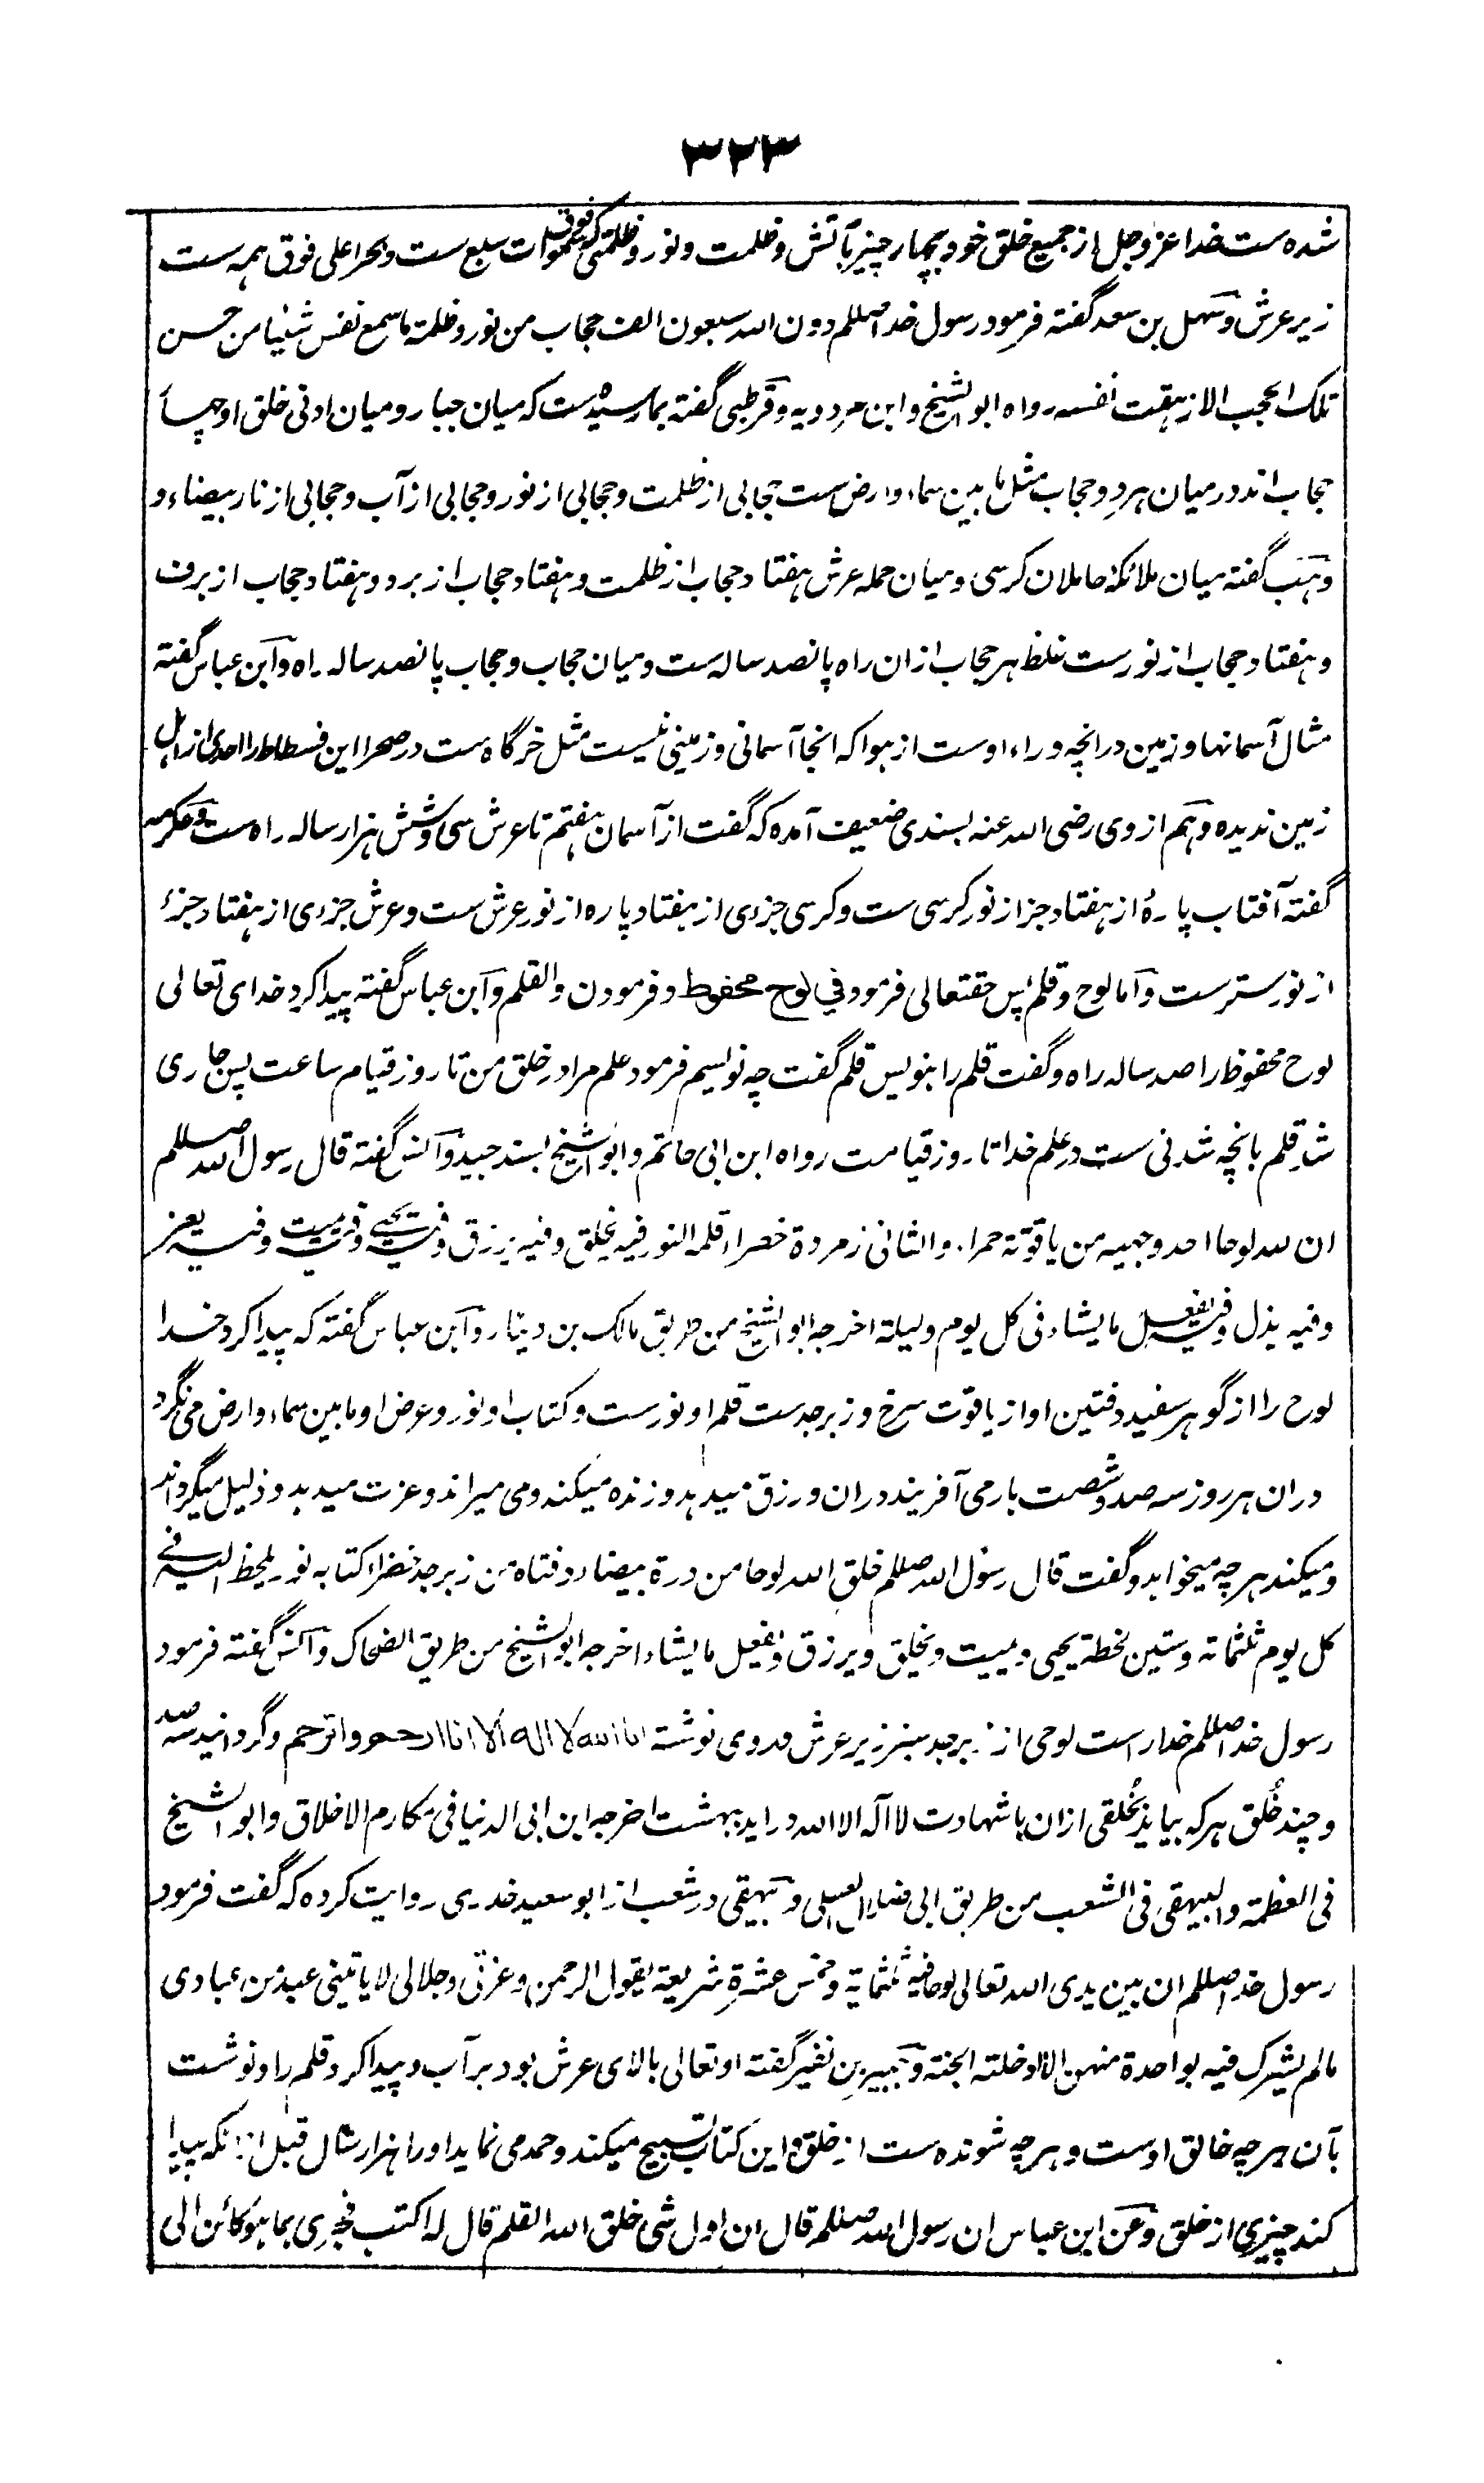 ۳۲۳
شده ست خدا عز وجل از جمیع خلق خود بچهار چیز بآتش و ظلمت و نور و ظلمتی که فوق سموات سبع ست و بحر اعلی فوق همه ست
زیر عرش و سهل بن سعد گفته فرمود رسول خدا صللم دون الله سبعون الف حجاب من نور و ظلمة ما سمع نفس شیئا من حسن
تلک الحجب الا زهقت نفسه رواه ابو الشیخ و ابن مردویه و قرطبی گفته بما رسیده ست که میان جبار و میان ادنی خلق او چهار
حجاب اند در میان هر دو حجاب مثل ما بین سماء و ارض ست حجابی از ظلمت و حجابی از نور و حجابی از آب و حجابی از نار بیضاء و
وهب گفته میان ملائکه حاملان کرسی و میان حمله عرش هفتاد حجاب از ظلمت و هفتاد حجاب از برد و هفتاد حجاب از برف
و هفتاد حجاب از نورست غلظ هر حجاب ازان راه پانصد ساله ست و میان حجاب و حجاب پانصد ساله راه و ابن عباس گفته
مثال آسمانها و زمین درانچه وراء اوست از هوا که انجا آسمانی و زمینی نیست مثل خرگاه ست در صحرا این فسطاط را احدی از اهل
زمین ندیده و هم از وی رضی الله عنه بسندی ضعیف آمده که گفت از آسمان هفتم تا عرش سی و شش هزار ساله راه ست و عکرمه
گفته آفتاب پارهٔ از هفتاد جز از نور کرسی ست و کرسی جزوی از هفتاد پاره از نور عرش ست و عرش جزوی از هفتاد جزء
از نور سترست و اما لوح و قلم پس حقتعالی فرمود في لوح محفوظ و فرمود ن والقلم و ابن عباس گفته پیدا کرد خدای تعالی
لوح محفوظ را صد ساله راه و گفت قلم را بنویس قلم گفت چه نویسم فرمود علم مرا در خلق من تا روز قیام ساعت پس جاری
شد قلم بانچه شدنی ست در علم خدا تا روز قیامت رواه ابن ابی حاتم و ابو الشیخ بسند جید و انس گفته قال رسول الله صللم
ان لله لوحا احد وجهیه من یاقوتة حمراء والثانی زمردة خضراء قلمه النور فیه یخلق و فیه یرزق و فیه یحیی و فیه یمیت و فیه یعز
و فیه یذل و فیه یفعل ما یشاء فی کل یوم و لیلة اخرجه ابو الشیخ من طریق مالک بن دینار و ابن عباس گفته که پیدا کرد خدا
لوح را از گوهر سفید دفتین او از یاقوت سرخ و زبرجدست قلم او نورست و کتاب او نور و عرض او ما بین سماء و ارض می نگرد
دران هر روز سه صد و شصت بار می آفریند دران و رزق میدهد و زنده میکند و می میراند و عزت میدهد و ذلیل میگرداند
و میکند هر چه میخواهد و گفت قال رسول الله صللم خلق الله لوحا من درة بیضاء دفتاه من زبرجد خضراء کتابه نور یلحظ الیه فی
کل یوم ثلثمائه و ستین لحظة یحیی و یمیت و یخلق و یرزق و یفعل ما یشاء اخرجه ابو الشیخ من طریق الضحاک و انس گفته فرمود
رسول خدا صللم خدا راست لوحی از زبرجد سبز زیر عرش در وی نوشته انا الله لا اله الا انا ارحم و اترحم و گردانید سه صد
و چند خُلق هر که بیاید بخلقی ازان با شهادت لا اله الا الله دراید بهشت اخرجه ابن ابی الدنیا فی مکارم الاخلاق و ابو الشیخ
فی العظمة و البیهقی فی الشعب من طریق ابی ضلال العسلی و بیهقی در شعب از ابو سعید خدری روایت کرده که گفت فرمود
رسول خدا صللم ان بین یدی الله تعالی لوحا فیه ثلثمایة و خمس عشرة شریعة یقول الرحمن و عزتی و جلالی لا یاتینی عبد من عبادی
مالم یشرک فیه بواحدة منهن الا ادخلته الجنة و جبیر بن نفیر گفته او تعالی بالای عرش بود بر آب و پیدا کرد قلم را و نوشت
بآن هر چه خالق اوست و هر چه شونده ست از خلق و این کتاب تسبیح میکند و حمد می نماید او را هزار سال قبل ازانکه پیدا
کند چیزی از خلق و عن ابن عباس ان رسول الله صللم قال ان اول شی خلق الله القلم قال له اکتب فجری بما هو کائن الی